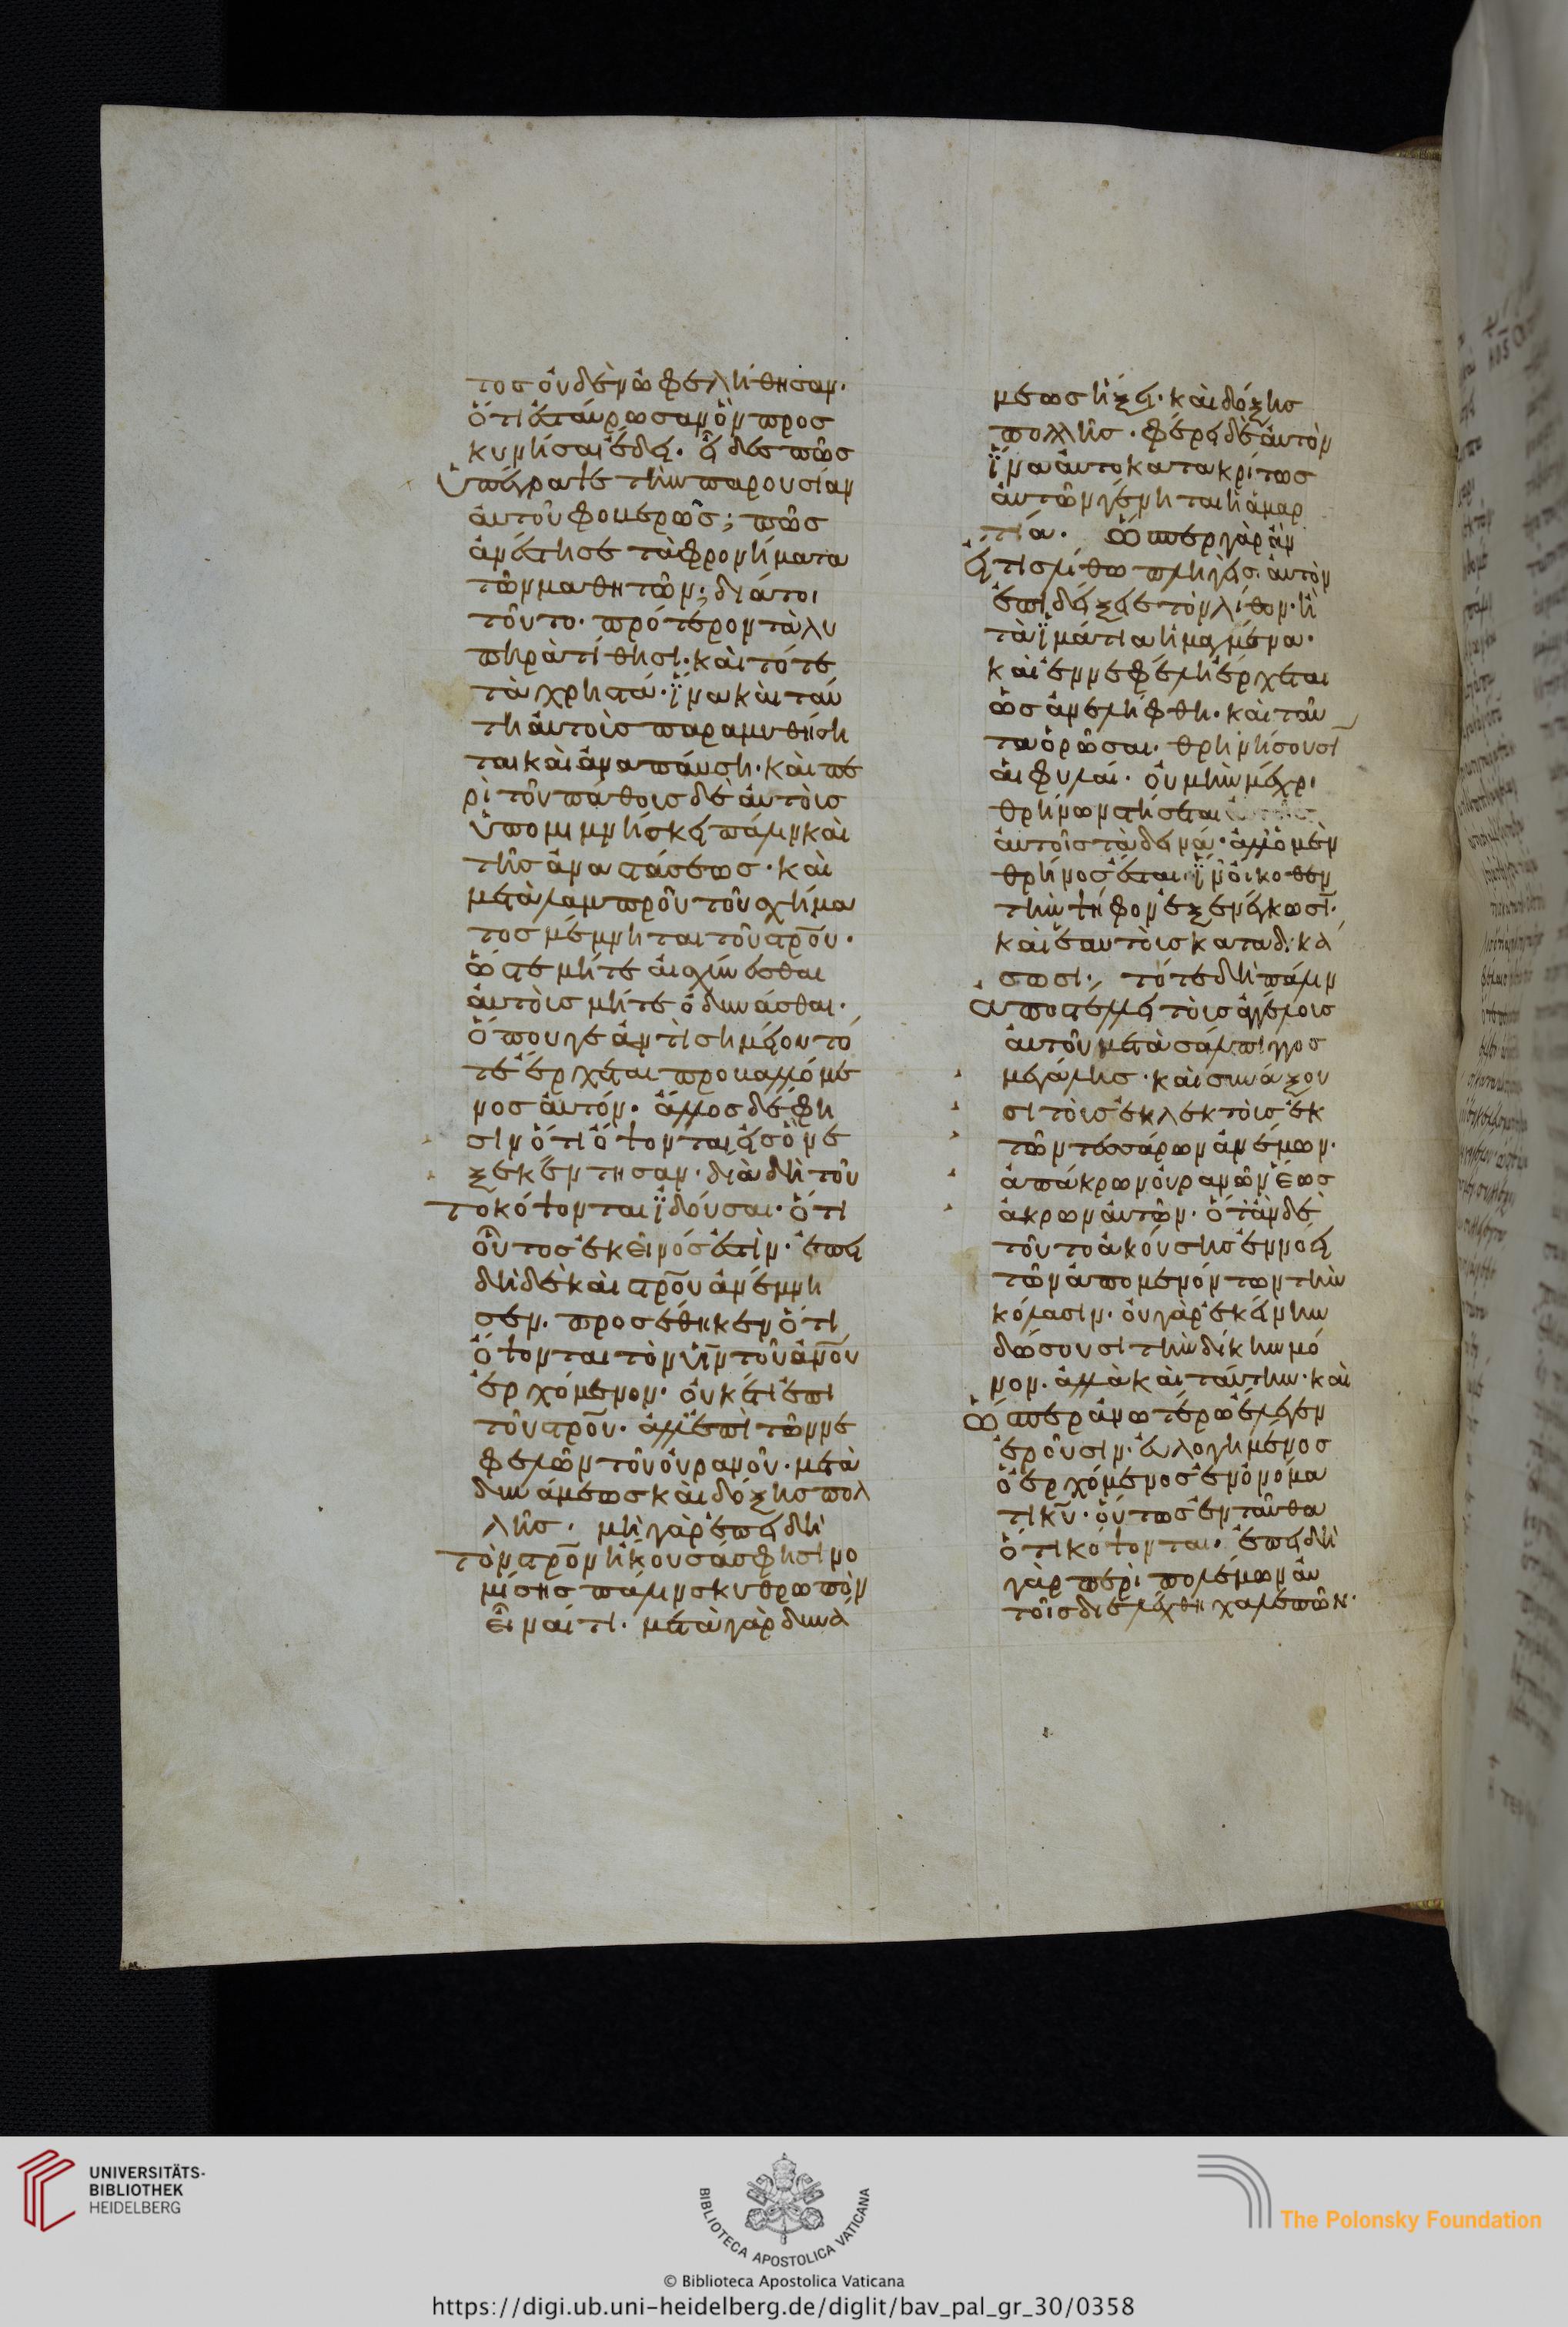 τος οὐδὲν ὠφελήθησαν·
ὅτι ἐσταύρωσαν ὃν προσ
κυνῆσαι ἔδει· εἶδες πῶς
ὑπέγραψε τὴν παρουσίαν
αὐτοῦ φοβερῶς; πῶς
ἀνέστησε τὰ φρονήματα
τῶν μαθητῶν; διάτοι
τοῦτο· πρότερον τὰ λυ
πηρὰ τίθησι· καὶ τότε
τὰ χρηστά· ἵνα καὶ ταύ
τη αὐτοὺς παραμυθήση
ται καὶ ἀναπαύση· καὶ πε
ρὶ τοῦ πάθους δὲ αὐτοὺς
ὑπομιμνήσκει πάλιν καὶ
τῆς ἀναστάσεως· καὶ
μετὰ λαμπροῦ τοῦ σχήμα
τος μέμνηται τοῦ στρου·
ὥστε μήτε αἰσχύνεσθαι
αὐτοὺς μήτε ὀδυνάσθαι·
ὅπου γε ἀντὶ σημείου τό
τε ἔρχεται προβαλλόμε
νος αὐτόν· ἄλλος δέ φη
σιν ὅτι ὄψονται εἰς ὃν ἐ
ξεκέντησαν· διὰ δὴ τοῦ
το κόψονται ἰδοῦσαι· ὅτι
οὗτος ἐκεῖνός ἐστιν· ἐπει
δὴ δὲ καὶ στρου ἀνέμνη
σεν· προσέθηκεν ὅτι
ὄψονται τὸν υἱν τοῦ ἀνου
ἐρχόμενον· οὐκέτι ἐπὶ
τοῦ στρου· ἀλλ' ἐπὶ τῶν νε
φελῶν τοῦ οὐρανοῦ· μετὰ
δυνάμεως καὶ δόξης πολ
λῆς· μὴ γὰρ ἐπειδὴ
τὸν στρον ἤκουσάς φησι νο
μίσης πάλιν σκυθρωπὸν
εἶναί τι· μετὰ γὰρ δυνά
μεως ἥξει· καὶ δόξης
πολλῆς· φέρει δὲ αὐτὸν
ἵνα αὐτοκατακρίτως
αὐτῶν γένηται ἡ ἁμαρ
τία· ὥσπερ γὰρ ἂν
εἴ τις λίθω πληγεὶς αὐτὸν
ἐπιδείξειε τὸν λίθον· ἢ
τὰ ἱμάτια ἡμαγμένα·
καὶ ἐν νεφέλη ἔρχεται
ὡς ἀνελήφθη· καὶ ταῦ
τα ὁρῶσαι· θρηνήσουσι
αἱ φυλαί· οὐ μὴν μέχρι
θρήνων στήσεται
αὐτοῖς τὰ δεινά· ἀλλ' ὁ μὲν
θρῆνος ἔσται ἵν' οἴκοθεν
τὴν ψῆφον ἐξενέγκωσι·
καὶ ἑαυτοὺς καταδικά
σωσι· τότε δὴ πάλιν
ἀποστέλλει τοὺς ἀγγέλους
αὐτοῦ μετὰ σάλπιγγος
μεγάλης· καὶ συνάξου
σι τοὺς ἐκλεκτοὺς ἐκ
τῶν τεσσάρων ἀνέμων·
ἀπ' ἄκρων οὐρανῶν ἕως
ἄκρων αὐτῶν· ὅταν δὲ
τοῦτο ἀκούσης ἐννόει
τῶν ἀπομενόντων τὴν
κόλασιν· οὐ γὰρ ἐκείνην
δώσουσι τὴν δίκην μό
νον· ἀλλὰ καὶ ταύτην· καὶ
ὥσπερ ἀνωτέρω ἔλεγεν
ἐροῦσιν· εὐλογημένος
ὁ ἐρχόμενος ἐν ὀνόμα
τι κυ· οὕτως ἐνταῦθα
ὅτι κόψονται· ἐπειδὴ
γὰρ περὶ πολέμων αὐ
τοῖς διελέχθη χαλεπῶν·
UNIVERSITÄTS-
BIBLIOTHEK
HEIDELBERG
BIBLIOTECA APOSTOLICA VATICANA
The Polonsky Foundation
© Biblioteca Apostolica Vaticana
https://digi.ub.uni-heidelberg.de/diglit/bav_pal_gr_30/0358